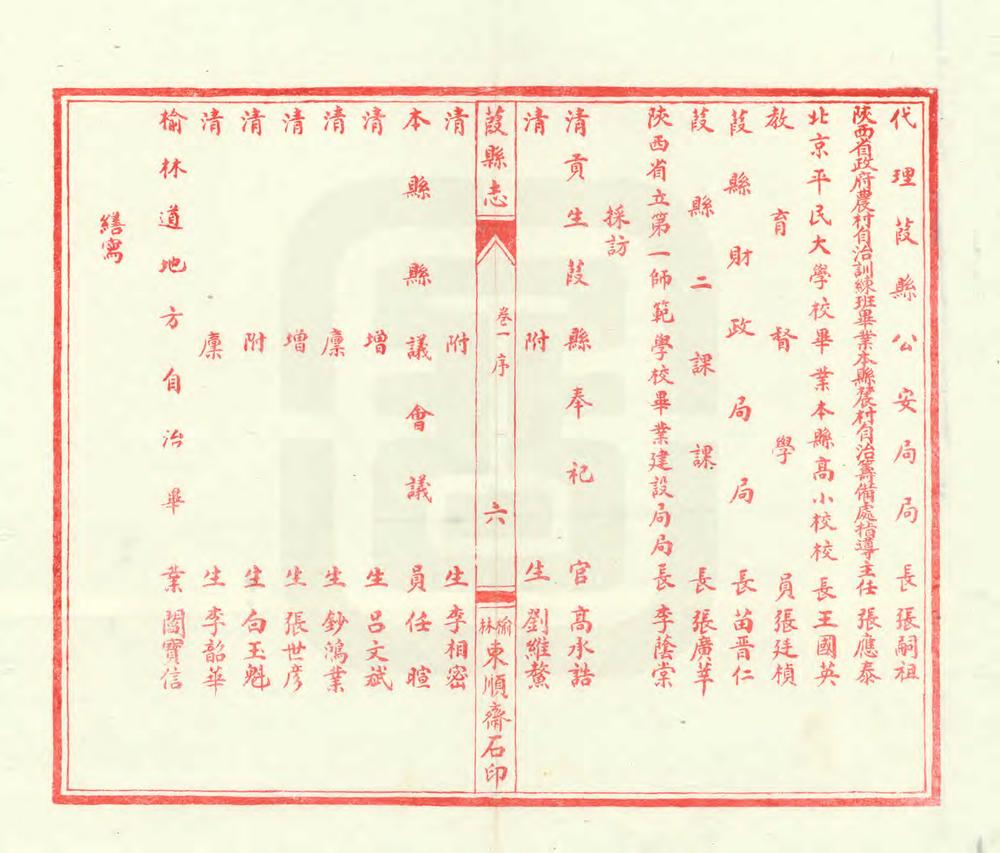 代理葭縣公安局局長張嗣祖
陝西省政府農村自治訓練班畢業本縣農村自治籌備處指導主任張應泰
北京平民大學校畢業本縣高小校校長王國英
教育督學員張廷楨
葭縣財政局局長苗晋仁
葭縣二課課長張廣萃
陝西省立第一師範學校畢業建設局局長李蔭棠
採訪
清貢生葭縣奉祀官高永誥
清附生劉維鰲
葭縣志
卷一序
六
榆林東順齋石印
清附生李相密
本縣縣議會議員任暄
清增生呂文斌
清廩生鈔鴻業
清增生張世彥
清附生白玉魁
清廩生李韶華
榆林道地方自治畢業閻寶信
繕寫